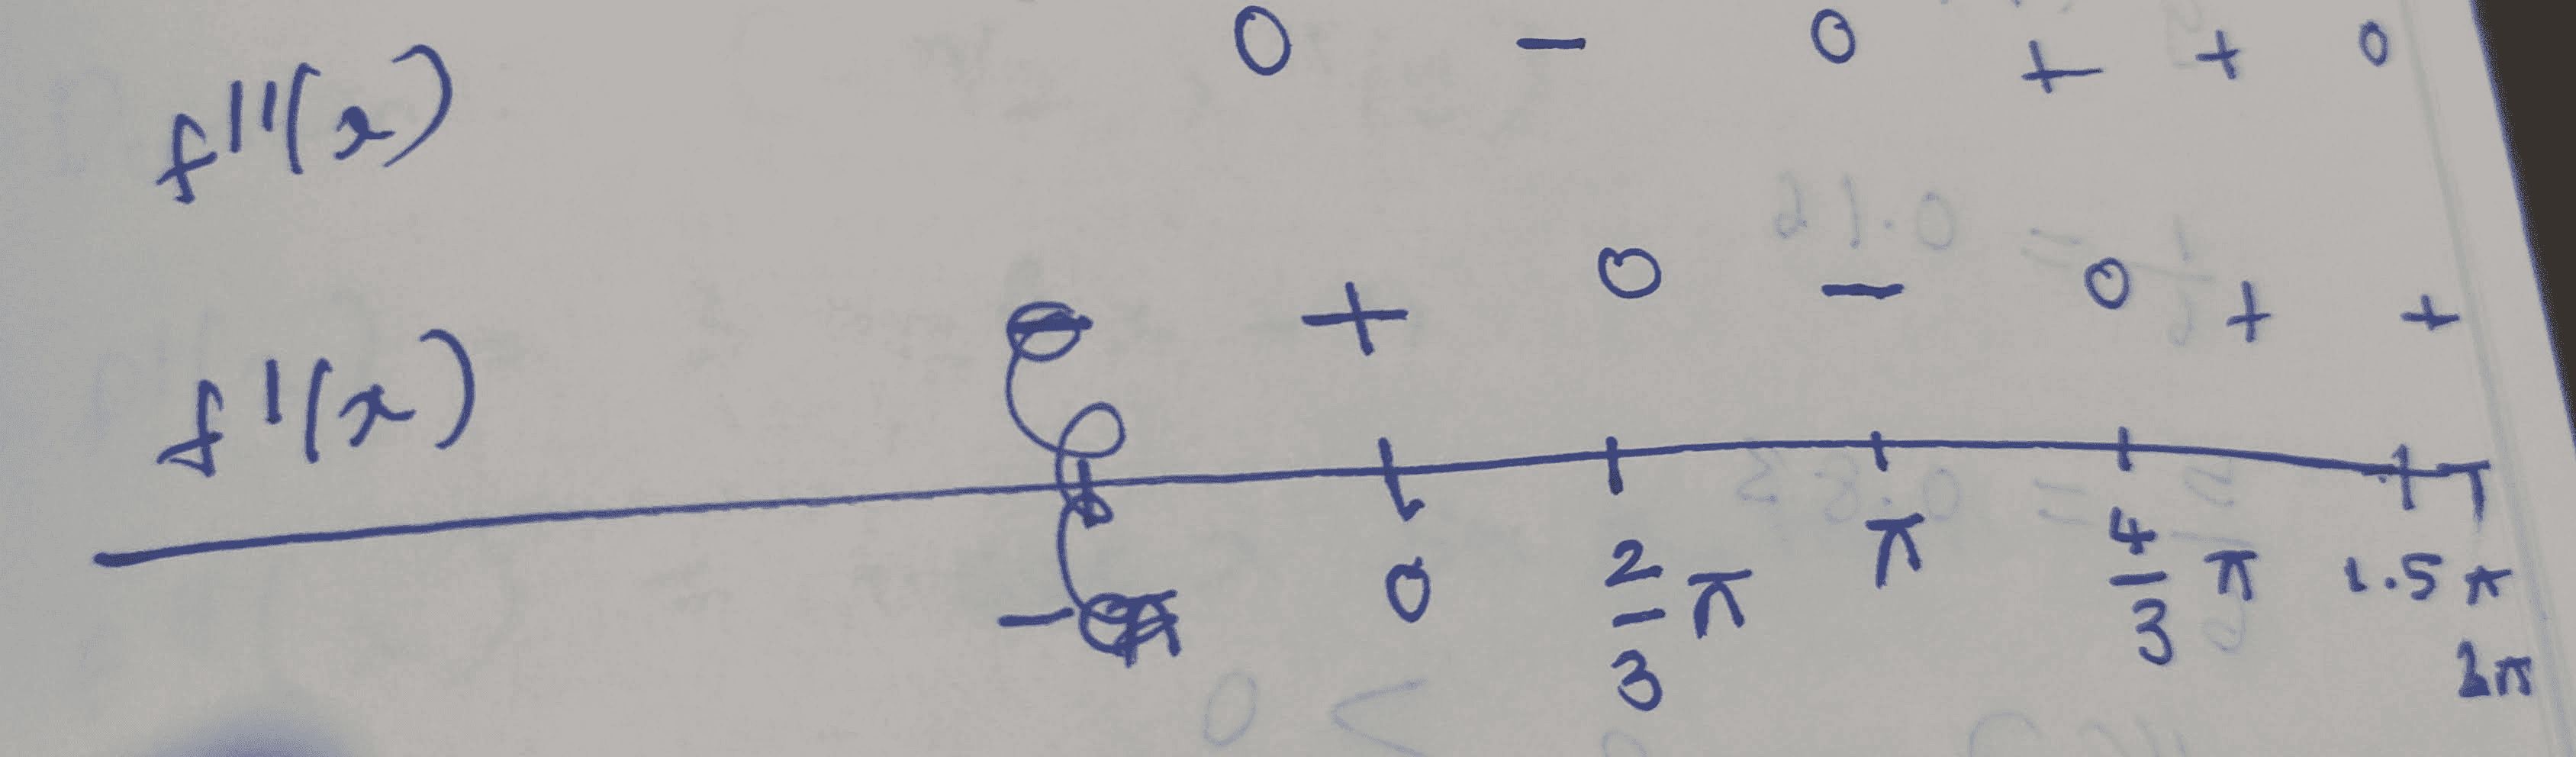 f''(x) 0 − 0 + + 0
f'(x) + 0 − 0 + +
0 2/3 π π 4/3 π 1.5 π
2π